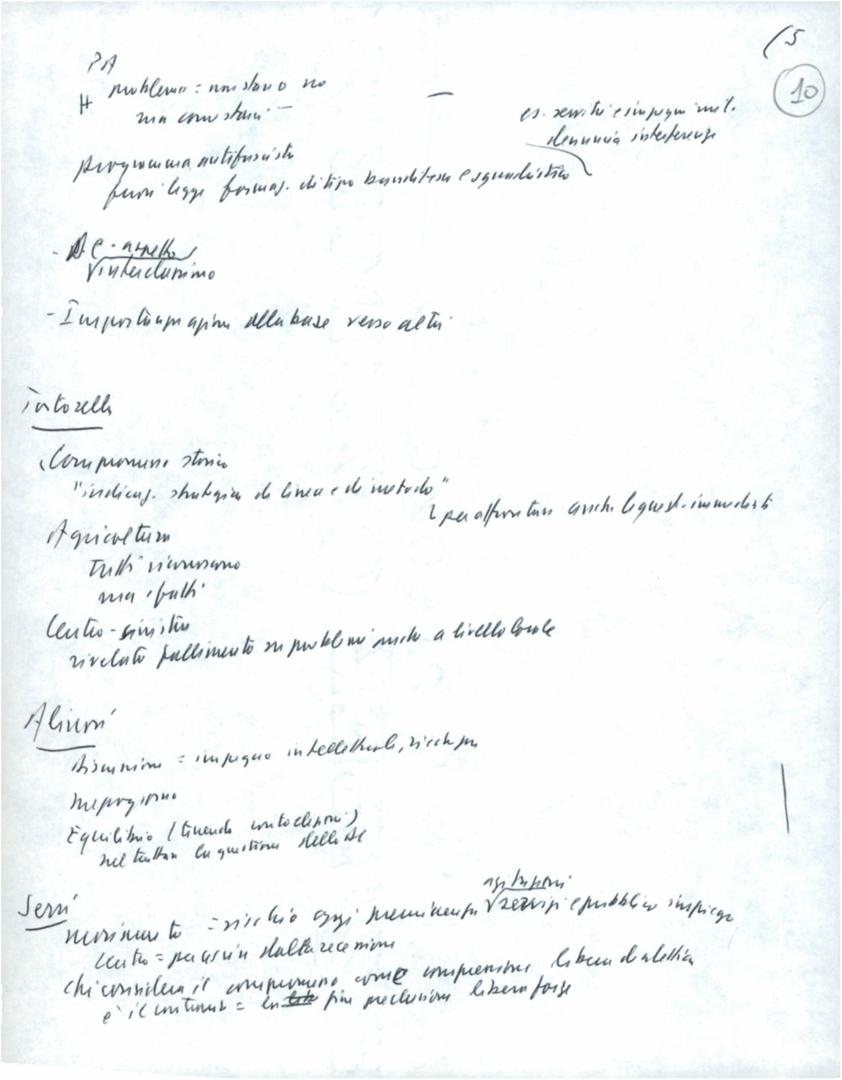 (5
10
PA
problema = non stano no
ma come stani —
es. servitù e impegni mil.
denuncia interferenze
programma antifascista
fuori legge formaz. di tipo banditesco e squadristico
- D.C. - aspetto
interclassismo
- Importanza azione della base verso altri
Tortorella
Compromesso storico
"indicaz. strategica di linea e di metodo"
per affrontare anche le quest. immediate
Agricoltura
tutti riconoscono
ma i fatti
Centro-sinistra
rivelato fallimento su problemi anche a livello locale
Alinovi
discussione = impegno intellettuale,
Mezzogiorno
Equilibrio (tenendo conto elezioni)
nel trattare la questione della DC
Serri
movimento = rischio oggi preminenza servizi e pubblico impiego
centro = per uscire dalla recessione
chi considera il compromesso come compressione libera dialettica
è il contrario = la fine preclusione libera forze